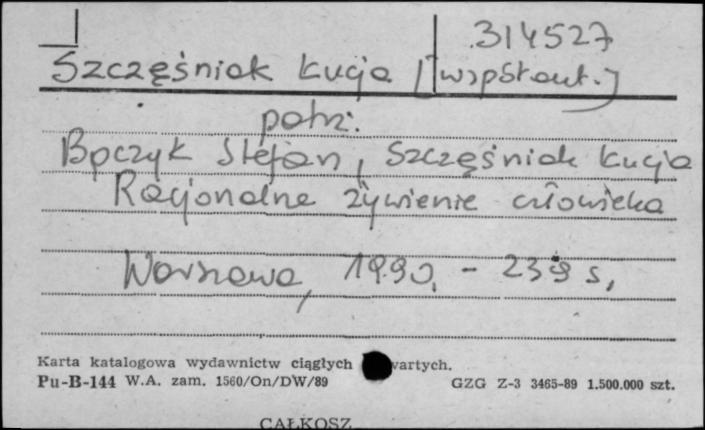 314527
Szczęśniak Łucja [współaut.]
patrz:
Bączyk Stefan, Szczęśniak Łucja
Racjonalne żywienie człowieka
Warszawa, 1990. - 239 s.
Karta katalogowa wydawnictw ciągłych wartych.
Pu-B-144 W.A. zam. 1560/On/DW/89 GZG Z-3 3465-89 1.500.000 szt.
CAŁKOSZ